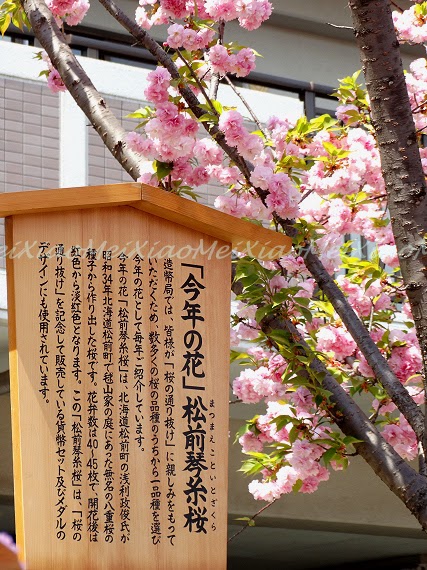 「今年の花」松前琴糸桜
まつまえことひめざくら
造幣局では、皆様が「桜の通り抜け」に親しみをもって
いただくため、数多くの桜の品種のうちから一品種を選び
今年の花として毎年ご紹介しています。
今年の花「松前琴糸桜」は、北海道松前町の浅利政俊氏が
昭和34年北海道松前町で越山家の庭にあった無名の八重桜の
種子から作り出した桜です。花弁数は40〜45枚で、開花後は
紅色から淡紅色となります。この「松前琴糸桜」は、「桜の
通り抜け」を記念して販売している貨幣セット及びメダルの
デザインにも使用されています。
MeiXiaoMeiXiaoMeiXiaoMeiXiaoMeiXiao